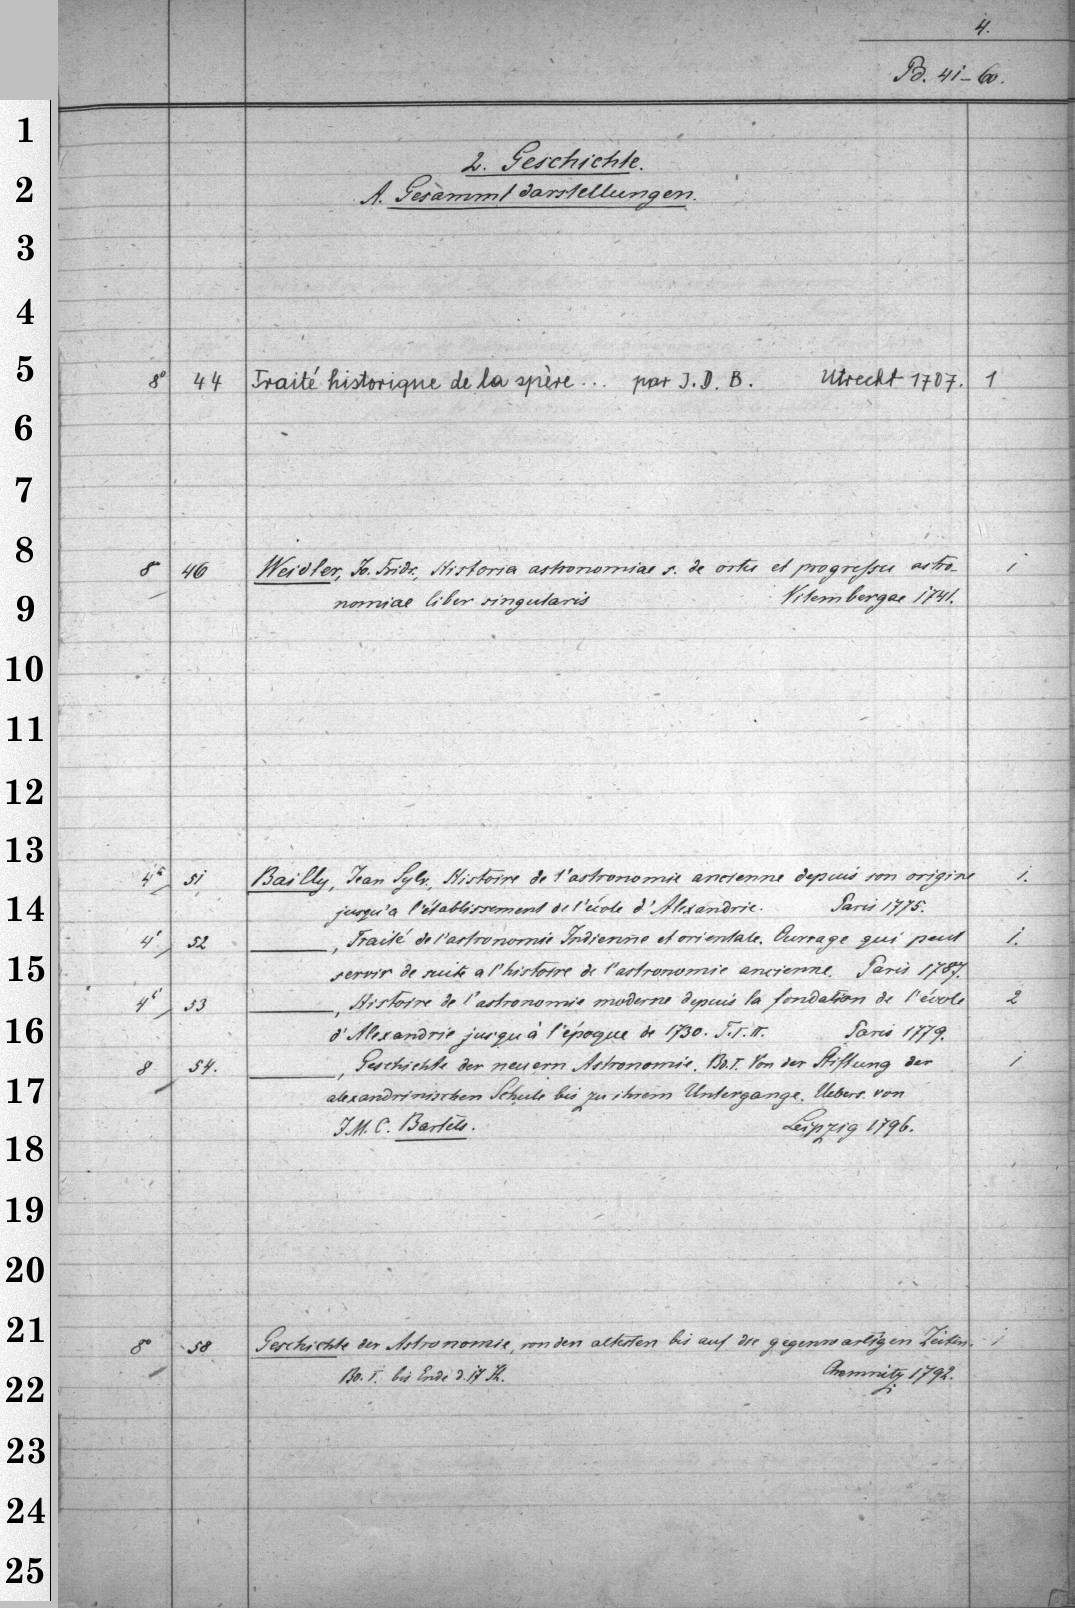 4.
Pd. 41-60.
1
2. Geschichte.
2
A. Gesammtdarstellungen.
3
4
5
8° 44 Traité historique de la spère... par J. D. B. Utrecht 1707. 1
6
7
8
8° 46 Weidler, Jo. Fridr., Historia astronomiae s. de ortu et progressu astro- 1
9
nomiae liber singularis Vitembergae 1741.
10
11
12
13
4° 51 Bailly, Jean Sylv., Histoire de l'astronomie ancienne depuis son origine 1.
14
jusqu'a l'établissement de l'école d'Alexandrie. Paris 1775.
4° 52 ———, Traité de l'astronomie Indienne et orientale. Ouvrage qui peut 1.
15
servir de suite a l'histoire de l'astronomie ancienne. Paris 1787.
4° 53 ———, Histoire de l'astronomie moderne depuis la fondation de l'école 2
16
d'Alexandrie jusqu'à l'époque de 1730. T.I.II. Paris 1779.
8 54. ———, Geschichte der neuern Astronomie. Bd. I. Von der Stiftung der 1
17
alexandrinischen Schule bis zu ihrem Untergange. Uebers. von
J. M. C. Bartels. Leipzig 1796.
18
19
20
21
8° 58 Geschichte der Astronomie, von den altesten bis auf die gegenwartigen Zeiten. 1
Bd. I. bis Ende d. 17 Jh. Chemnitz 1792.
22
23
24
25